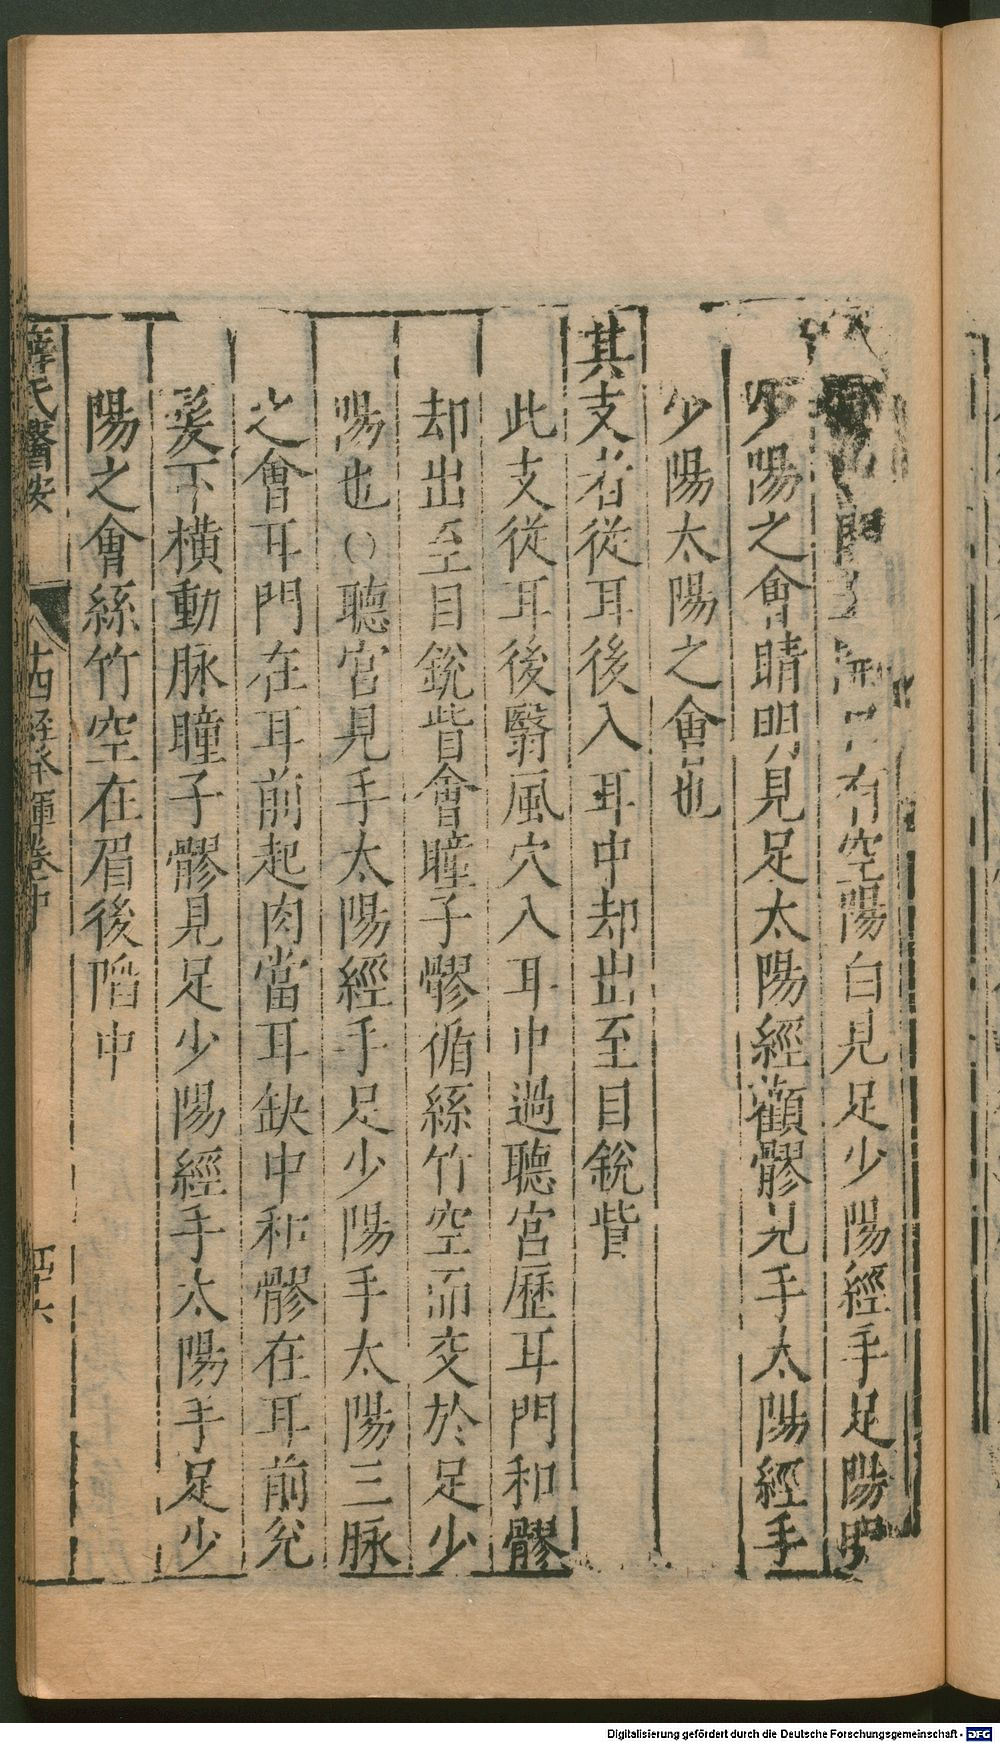 開口有空陽白見足少陽經手足陽明
少陽之會睛明見足太陽經顴髎見手太陽經手
少陽太陽之會也
其支者從耳後入耳中却出至目銳眥
此支從耳後翳風穴入耳中過聽宮歷耳門和髎
却出至目銳眥會瞳子髎循絲竹空而交於足少
陽也〇聽宮見手太陽經手足少陽手太陽三脉
之會耳門在耳前起肉當耳缺中和髎在耳前兊
髮下橫動脉瞳子髎見足少陽經手太陽手足少
陽之會絲竹空在眉後陷中
薛氏醫按 十四經發揮卷中 四十六
Digitalisierung gefördert durch die Deutsche Forschungsgemeinschaft - DFG